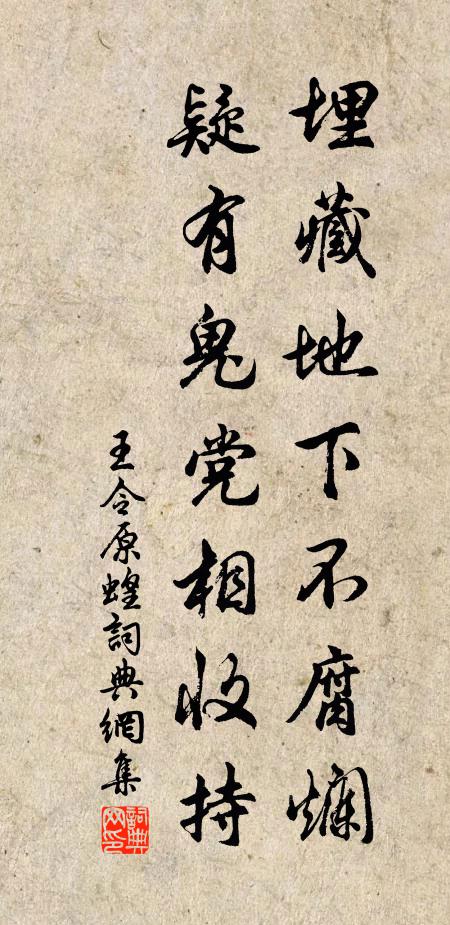 埋藏地下不腐爛
疑有鬼党相收持
王令原蝗詞典網集
詞典网印